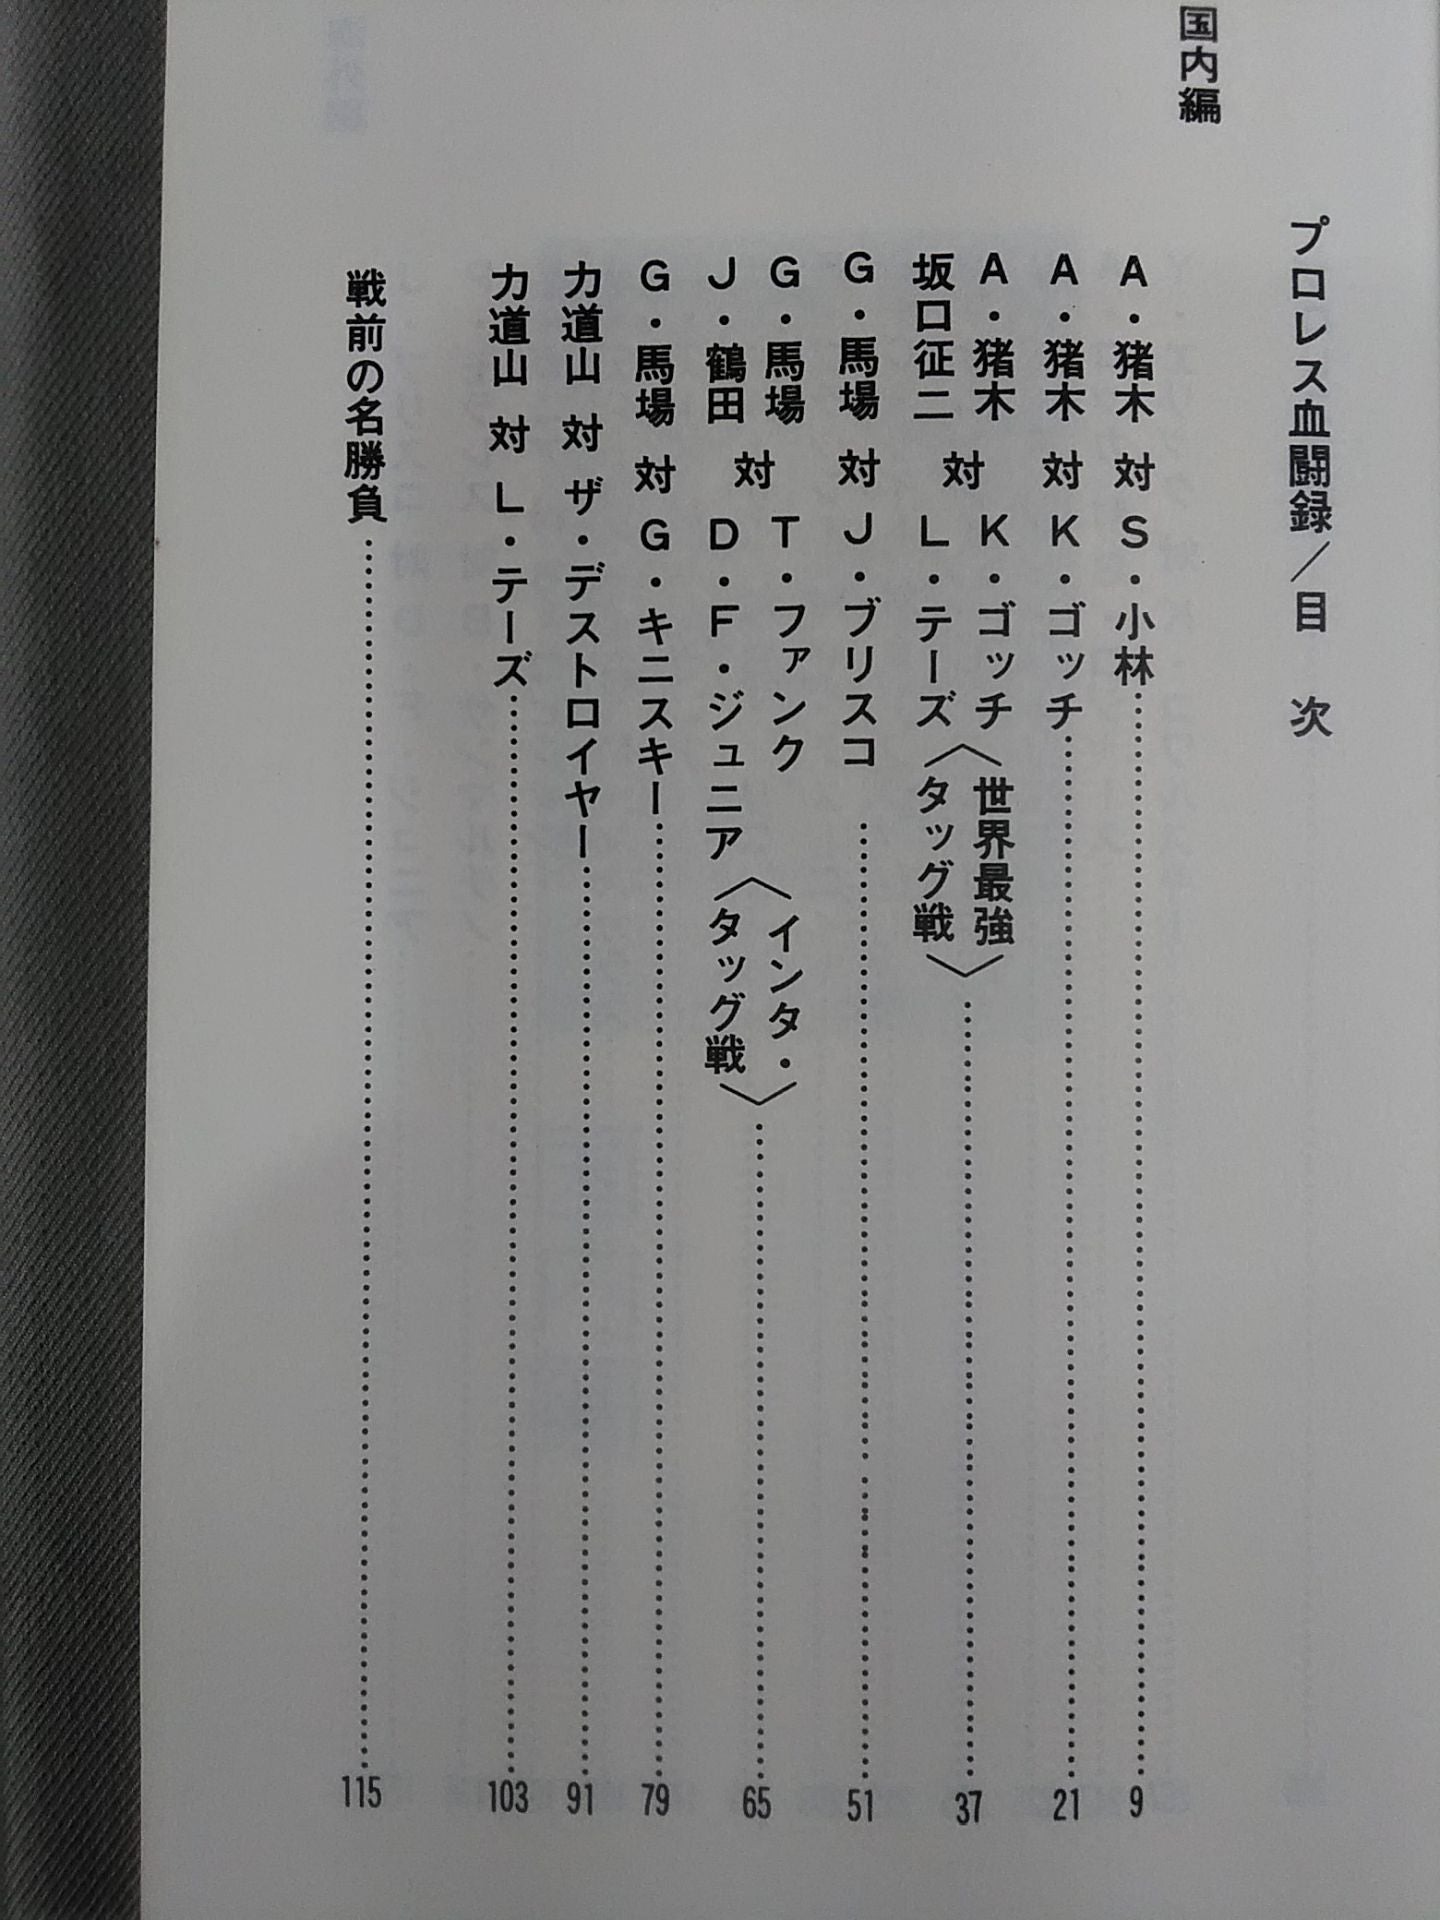 プロレス血闘録／目 次
国内編
A・猪木 対 S・小林……9
A・猪木 対 K・ゴッチ……21
A・猪木
坂口征二
対
K・ゴッチ
L・テーズ
〈世界最強
タッグ戦〉……37
G・馬場 対 J・ブリスコ……51
G・馬場
J・鶴田
対
T・ファンク
D・F・ジュニア
〈インタ・
タッグ戦〉……65
G・馬場 対 G・キニスキー……79
力道山 対 ザ・デストロイヤー……91
力道山 対 L・テーズ……103
戦前の名勝負……115